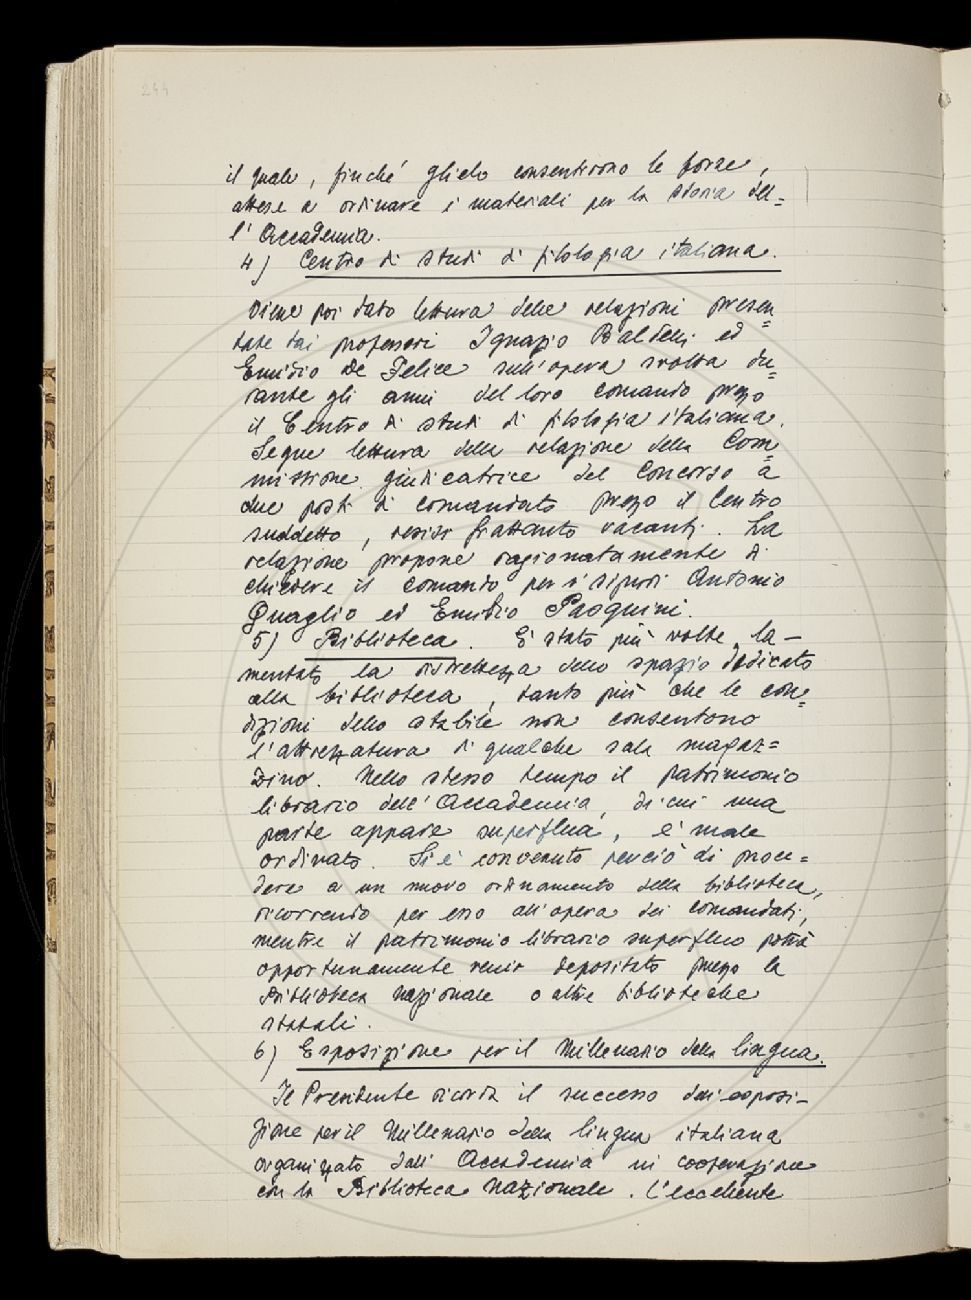 244
il quale, finché glielo consentirono le forze,
attese a ordinare i materiali per la storia del=
l'Accademia.
4) Centro di studi di filologia italiana.
Viene poi dato lettura delle relazioni presen=
tate dai professori Ignazio Baldelli ed
Emidio De Felice sull'opera svolta du=
rante gli anni del loro comando presso
il Centro di studi di filologia italiana.
Segue lettura della relazione della Com=
missione giudicatrice del Concorso a
due posti di comandato presso il Centro
suddetto, resisi frattanto vacanti. La
relazione propone ragionatamente di
chiedere il comando per i signori Antonio
Quaglio ed Emilio Pasquini.
5) Biblioteca. È stato più volte la-
mentato la ristrettezza dello spazio dedicato
alla biblioteca, tanto più che le con=
dizioni dello stabile non consentono
l'attrezzatura di qualche sala magaz=
zino. Nello stesso tempo il patrimonio
librario dell'Accademia, di cui una
parte appare superflua, è male
ordinato. Si è convenuto perciò di proce=
dere a un nuovo ordinamento della biblioteca,
ricorrendo per esso all'opera dei comandati,
mentre il patrimonio librario superfluo potrà
opportunamente venir depositato presso la
Biblioteca Nazionale o altre biblioteche
statali.
6) Esposizione per il Millenario della lingua.
Il Presidente ricorda il successo dell'esposi-
zione per il Millenario della lingua italiana
organizzato dall'Accademia in cooperazione
con la Biblioteca Nazionale. L'eccellente